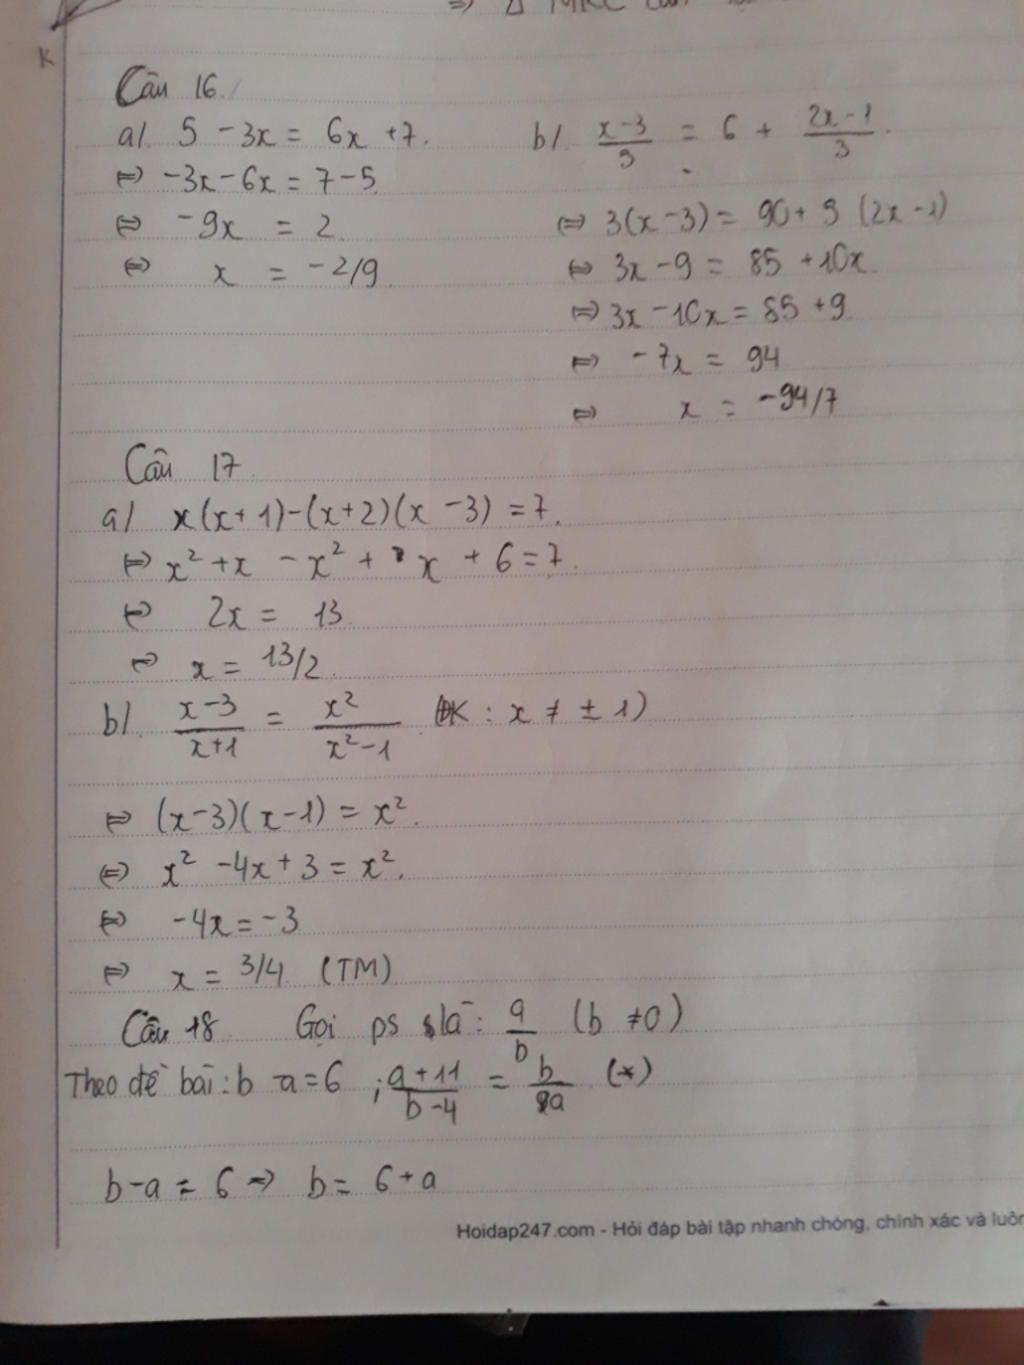 K
Câu 16.
a/. 5 - 3x = 6x + 7.
⇔ -3x - 6x = 7 - 5
⇔ -9x = 2
⇔ x = -2/9
b/. (x-3)/5 = 6 + (2x-1)/3.
⇔ 3(x-3) = 90 + 5(2x-1)
⇔ 3x - 9 = 85 + 10x
⇔ 3x - 10x = 85 + 9
⇔ -7x = 94
⇔ x = -94/7
Câu 17
a/ x(x+1)-(x+2)(x-3) = 7.
⇔ x² + x - x² + x + 6 = 7.
⇔ 2x = 13
⇔ x = 13/2
b/. (x-3)/(x+1) = x²/(x²-1) (ĐK : x ≠ ± 1)
⇔ (x-3)(x-1) = x².
⇔ x² - 4x + 3 = x².
⇔ -4x = -3
⇔ x = 3/4. (TM)
Câu 18 Gọi ps là : a/b (b ≠ 0)
Theo đề bài : b - a = 6 ; (a+11)/(b-4) = b/a (*)
b - a = 6 => b = 6 + a
Hoidap247.com - Hỏi đáp bài tập nhanh chóng, chính xác và